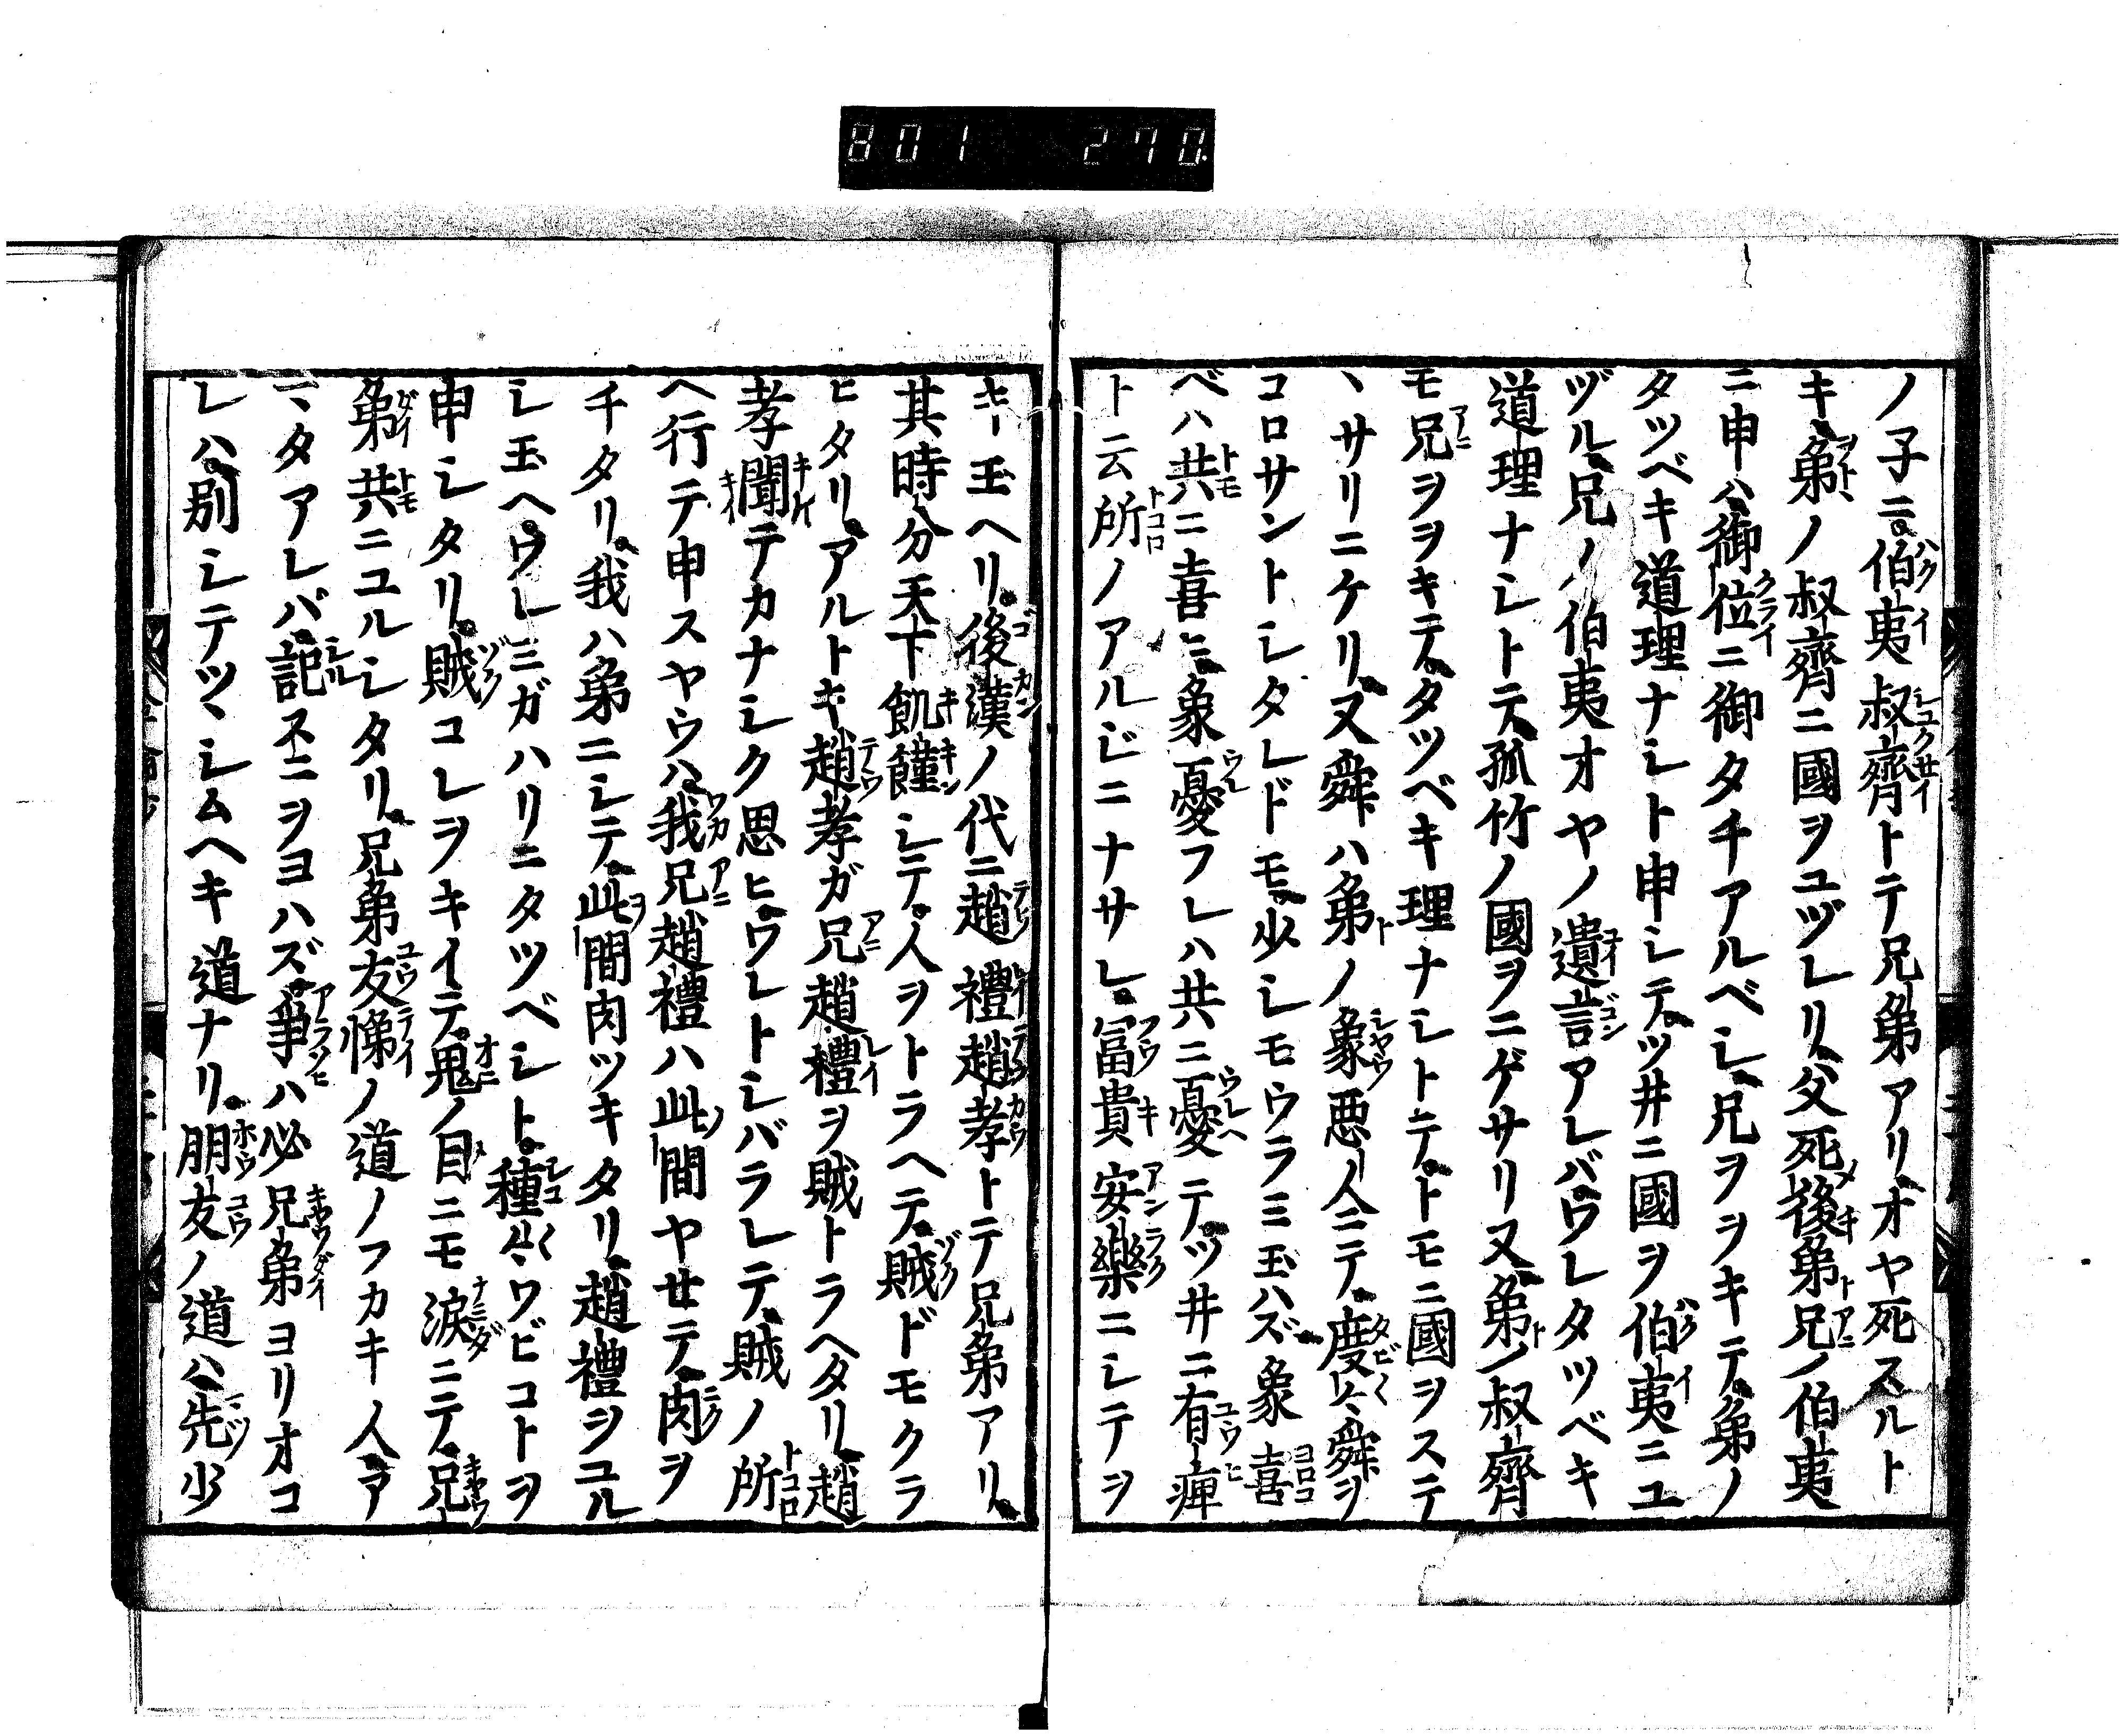 801 270.
ノ子ニ。伯夷叔齊トテ兄弟アリ。オヤ死スルト
キ。弟ノ叔齊ニ國ヲユヅレリ。父死後弟兄ノ伯夷
ニ申ハ。御位ニ御タチアルベシ。兄ヲヲキテ。弟ノ
タツベキ道理ナシト申シテ。ツ井ニ國ヲ伯夷ニユ
ヅル。兄ノ伯夷オヤノ遺言アレバ。ワレタツベキ
道理ナシトテ。孤竹ノ國ヲニゲサリ。又弟ノ叔齊
モ兄ヲヲキテ。タツベキ理ナシトテ。トモニ國ヲステ
丶サリニケリ。又舜ハ弟ノ象悪人ニテ。度々舜ヲ
コロサントシタレドモ。少シモウラミ玉ハズ。象喜
ベハ共ニ喜ミ。象憂フレハ共ニ憂テ。ツ井ニ有痺
ト云所ノアルジニナサレ。冨貴安樂ニシテヲ
キ玉ヘリ。後漢ノ代ニ趙禮趙孝トテ兄弟アリ。
其時分天下飢饉シテ。人ヲトラヘテ。賊ドモクラ
ヒタリ。アルトキ趙孝ガ兄趙禮ヲ賊トラヘタリ。趙
孝聞テカナシク思ヒ。ワレトシバラレテ。賊ノ所
ヘ行テ申スヤウハ。我兄趙禮ハ此間ヤせテ。肉ヲ
チタリ。我ハ弟ニシテ。此間肉ツキタリ。趙禮ヲユル
シ玉ヘ。ワレミガハリニタツベシト。種々ワビコトヲ
申シタリ。賊コレヲキイテ。鬼ノ目ニモ涙ニテ。兄
弟共ニユルシタリ。兄弟友悌ノ道ノフカキ人。ア
マタアレバ。記スニヲヨハズ。爭ハ必兄弟ヨリオコ
レハ。別シテツヽシムヘキ道ナリ。朋友ノ道ハ。先少